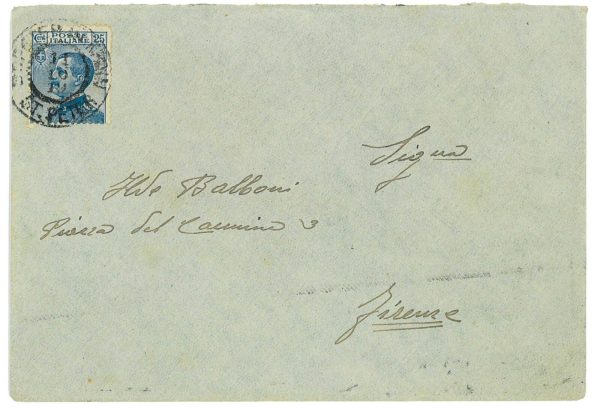 POSTE
ITALIANE
25
ST. PETER
Signa
Ilde Balboni
Piazza del Carmine 3
Firenze